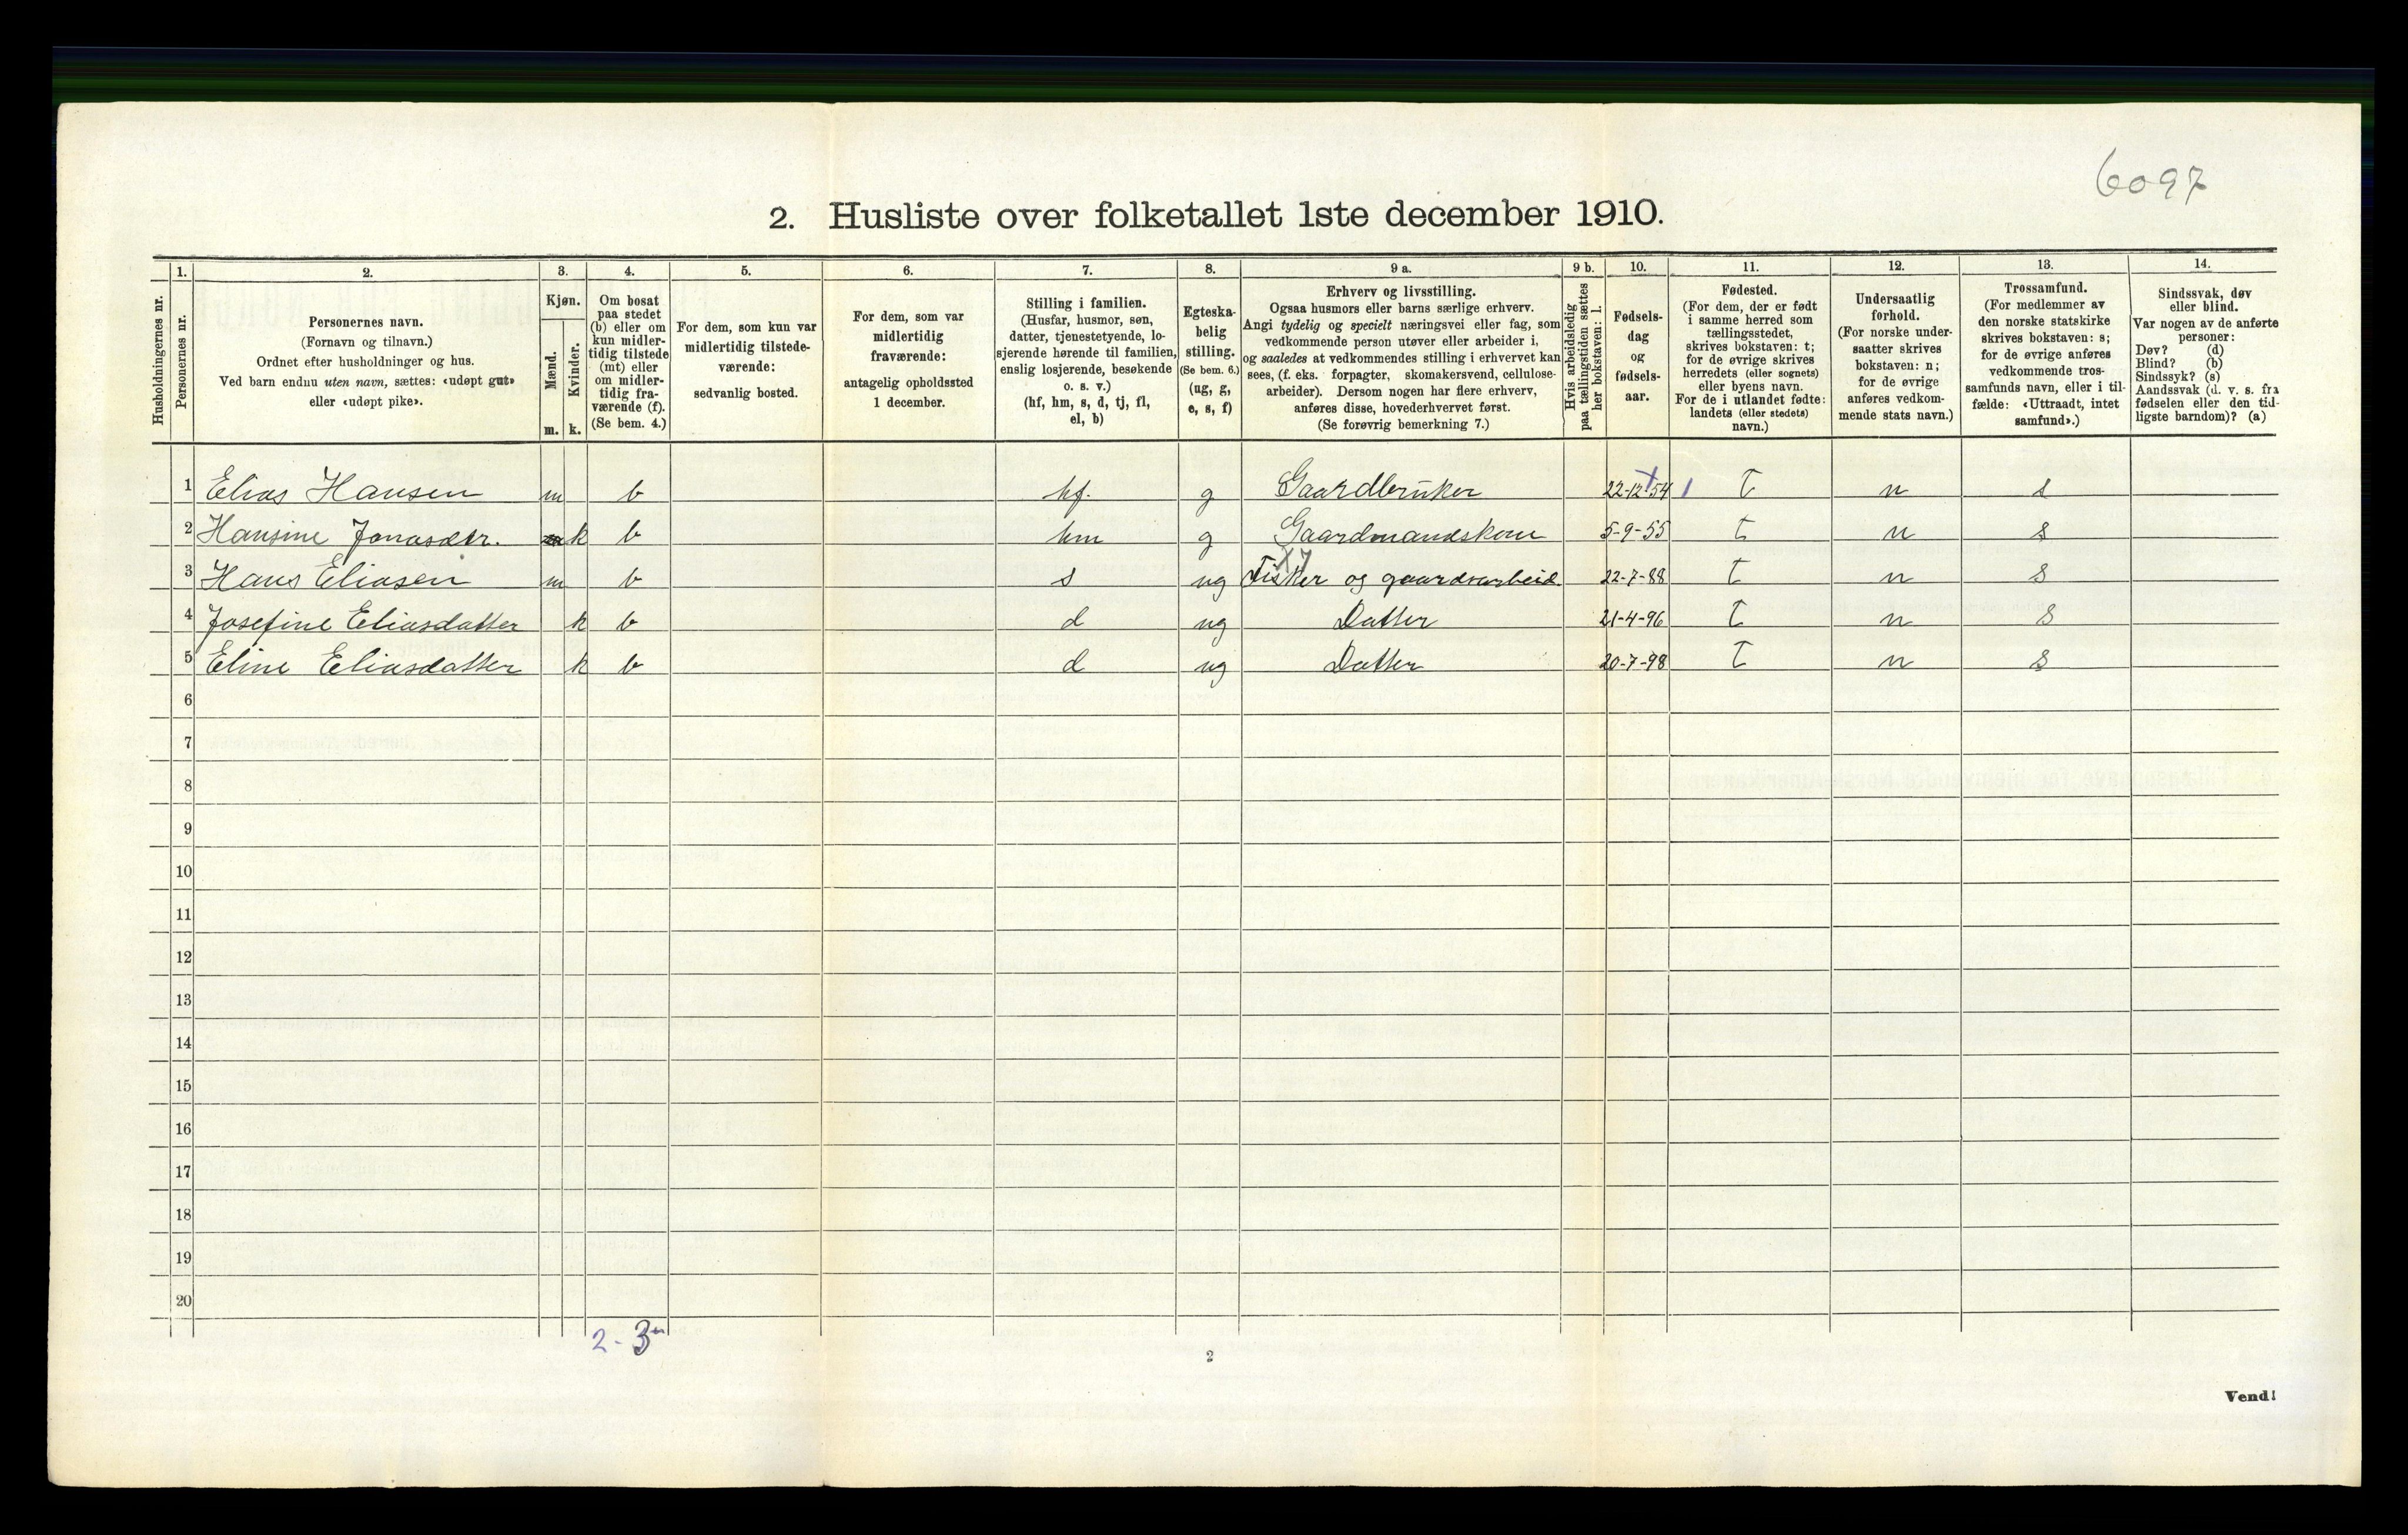 6097
2. Husliste over folketallet 1ste december 1910.
Husholdningernes nr.
1. Personernes nr.
2. Personernes navn.
(Fornavn og tilnavn.)
Ordnet efter husholdninger og hus.
Ved barn endnu uten navn, sættes: «udøpt gut»
eller «udøpt pike».
3. Kjøn.
Mænd. Kvinder.
m. k.
4. Om bosat
paa stedet
(b) eller om
kun midler-
tidig tilstede
(mt) eller
om midler-
tidig fra-
værende (f).
(Se bem. 4.)
5. For dem, som kun var
midlertidig tilstede-
værende:
sedvanlig bosted.
6. For dem, som var
midlertidig
fraværende:
antagelig opholdssted
1 december.
7. Stilling i familien.
(Husfar, husmor, søn,
datter, tjenestetyende, lo-
sjerende hørende til familien,
enslig losjerende, besøkende
o. s. v.)
(hf, hm, s, d, tj, fl,
el, b)
8. Egteska-
belig
stilling.
(Se bem. 6.)
(ug, g,
e, s, f)
9 a. Erhverv og livsstilling.
Ogsaa husmors eller barns særlige erhverv.
Angi tydelig og specielt næringsvei eller fag, som
vedkommende person utøver eller arbeider i,
og saaledes at vedkommendes stilling i erhvervet kan
sees, (f. eks. forpagter, skomakersvend, cellulose-
arbeider). Dersom nogen har flere erhverv,
anføres disse, hovederhvervet først.
(Se forøvrig bemerkning 7.)
9 b. Hvis arbeidsledig
paa tællingstiden sættes
her bokstaven: l.
10. Fødsels-
dag
og
fødsels-
aar.
11. Fødested.
(For dem, der er født
i samme herred som
tællingsstedet,
skrives bokstaven: t;
for de øvrige skrives
herredets (eller sognets)
eller byens navn.
For de i utlandet fødte:
landets (eller stedets)
navn.)
12. Undersaatlig
forhold.
(For norske under-
saatter skrives
bokstaven: n;
for de øvrige
anføres vedkom-
mende stats navn.)
13. Trossamfund.
(For medlemmer av
den norske statskirke
skrives bokstaven: s;
for de øvrige anføres
vedkommende tros-
samfunds navn, eller i til-
fælde: «Uttraadt, intet
samfund».)
14. Sindssvak, døv
eller blind.
Var nogen av de anførte
personer:
Døv? (d)
Blind? (b)
Sindssyk? (s)
Aandssvak (d. v. s. fra
fødselen eller den tid-
ligste barndom)? (a)
1 Elias Hansen m b hf. g Gaardbruker 22-12-54 t n s
2 Hansine Jonasdtr. k b hm g Gaardmandskone 5-9-55 t n s
3 Hans Eliasen m b s ug Fisker og gaardsarbeid. 22-7-88 t n s
4 Josefine Eliasdatter k b d ug Datter 21-4-96 t n s
5 Eline Eliasdatter k b d ug Datter 20-7-98 t n s
6
7
8
9
10
11
12
13
14
15
16
17
18
19
20
2-3
2
Vend!